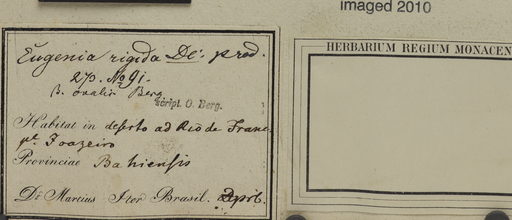 imaged 2010
Eugenia rigida DC. prod.
270. No 91.
B. ovalis Berg.
script. O. Berg.
HERBARIUM REGIUM MONACEN
Habitat in deserto ad Rio de Franc
pt. Joazeiro
Provinciae Bahiensis
Dr Martius Iter Brasil. April.